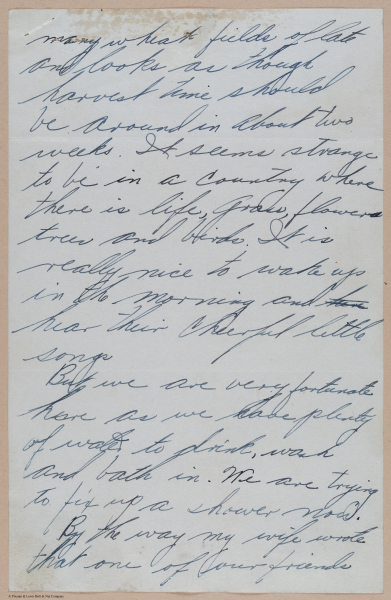 many wheat fields of late
and looks as though
harvest time should
be around in about two
weeks. It seems strange
to be in a country where
there is life, Grass, flowers
trees and birds. It is
really nice to wake up
in the morning and
hear their cheerful little
songs
But we are very fortunate
here as we have plenty
of water to drink, wash
and bath in. We are trying
to fix up a shower now.
By the way my wife wrote
that one of our friends